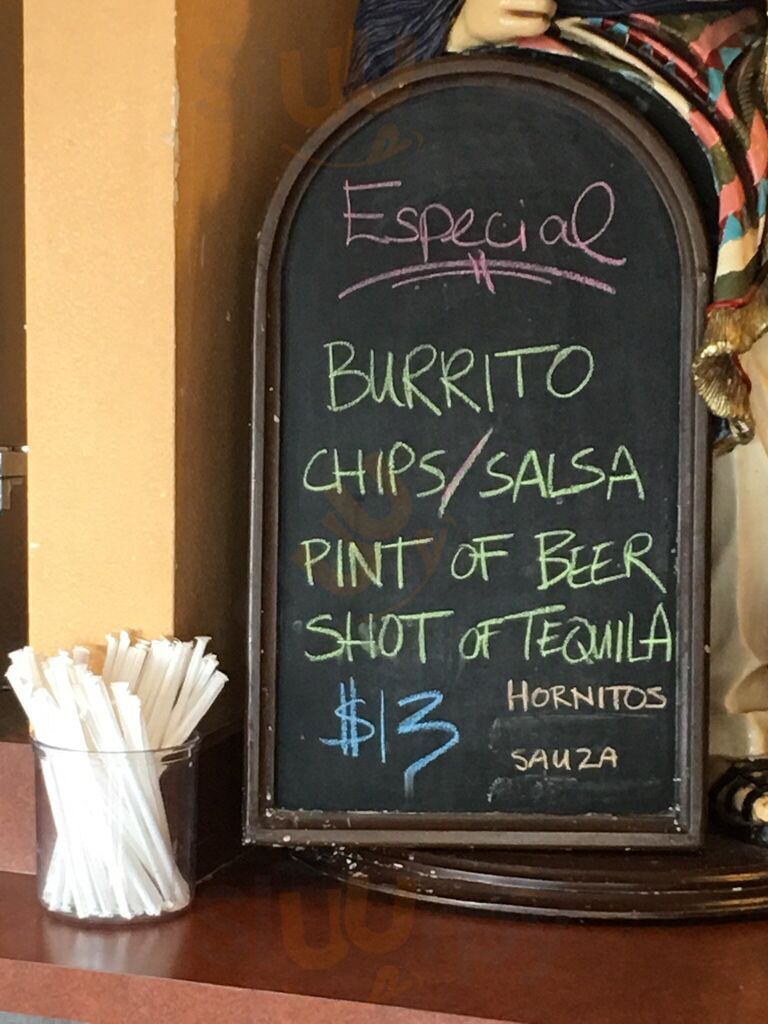 Especial
BURRITO
CHIPS/SALSA
PINT OF BEER
SHOT OF TEQUILA
$13
HORNITOS
SAUZA